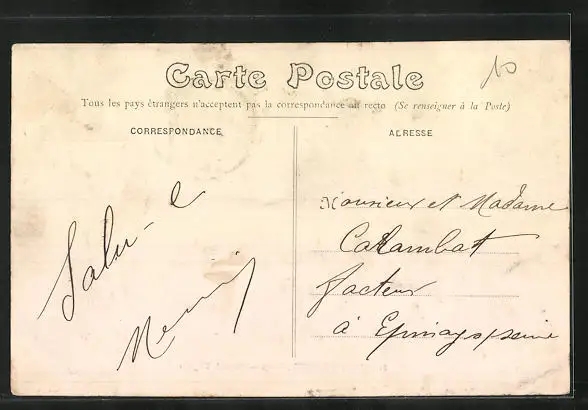 10
Carte Postale
Tous les pays étrangers n'acceptent pas la correspondance au recto (Se renseigner à la Poste)
CORRESPONDANCE
ADRESSE
Monsieur et Madame
Carambat
facteur
à Epinay s/seine
Salu - e